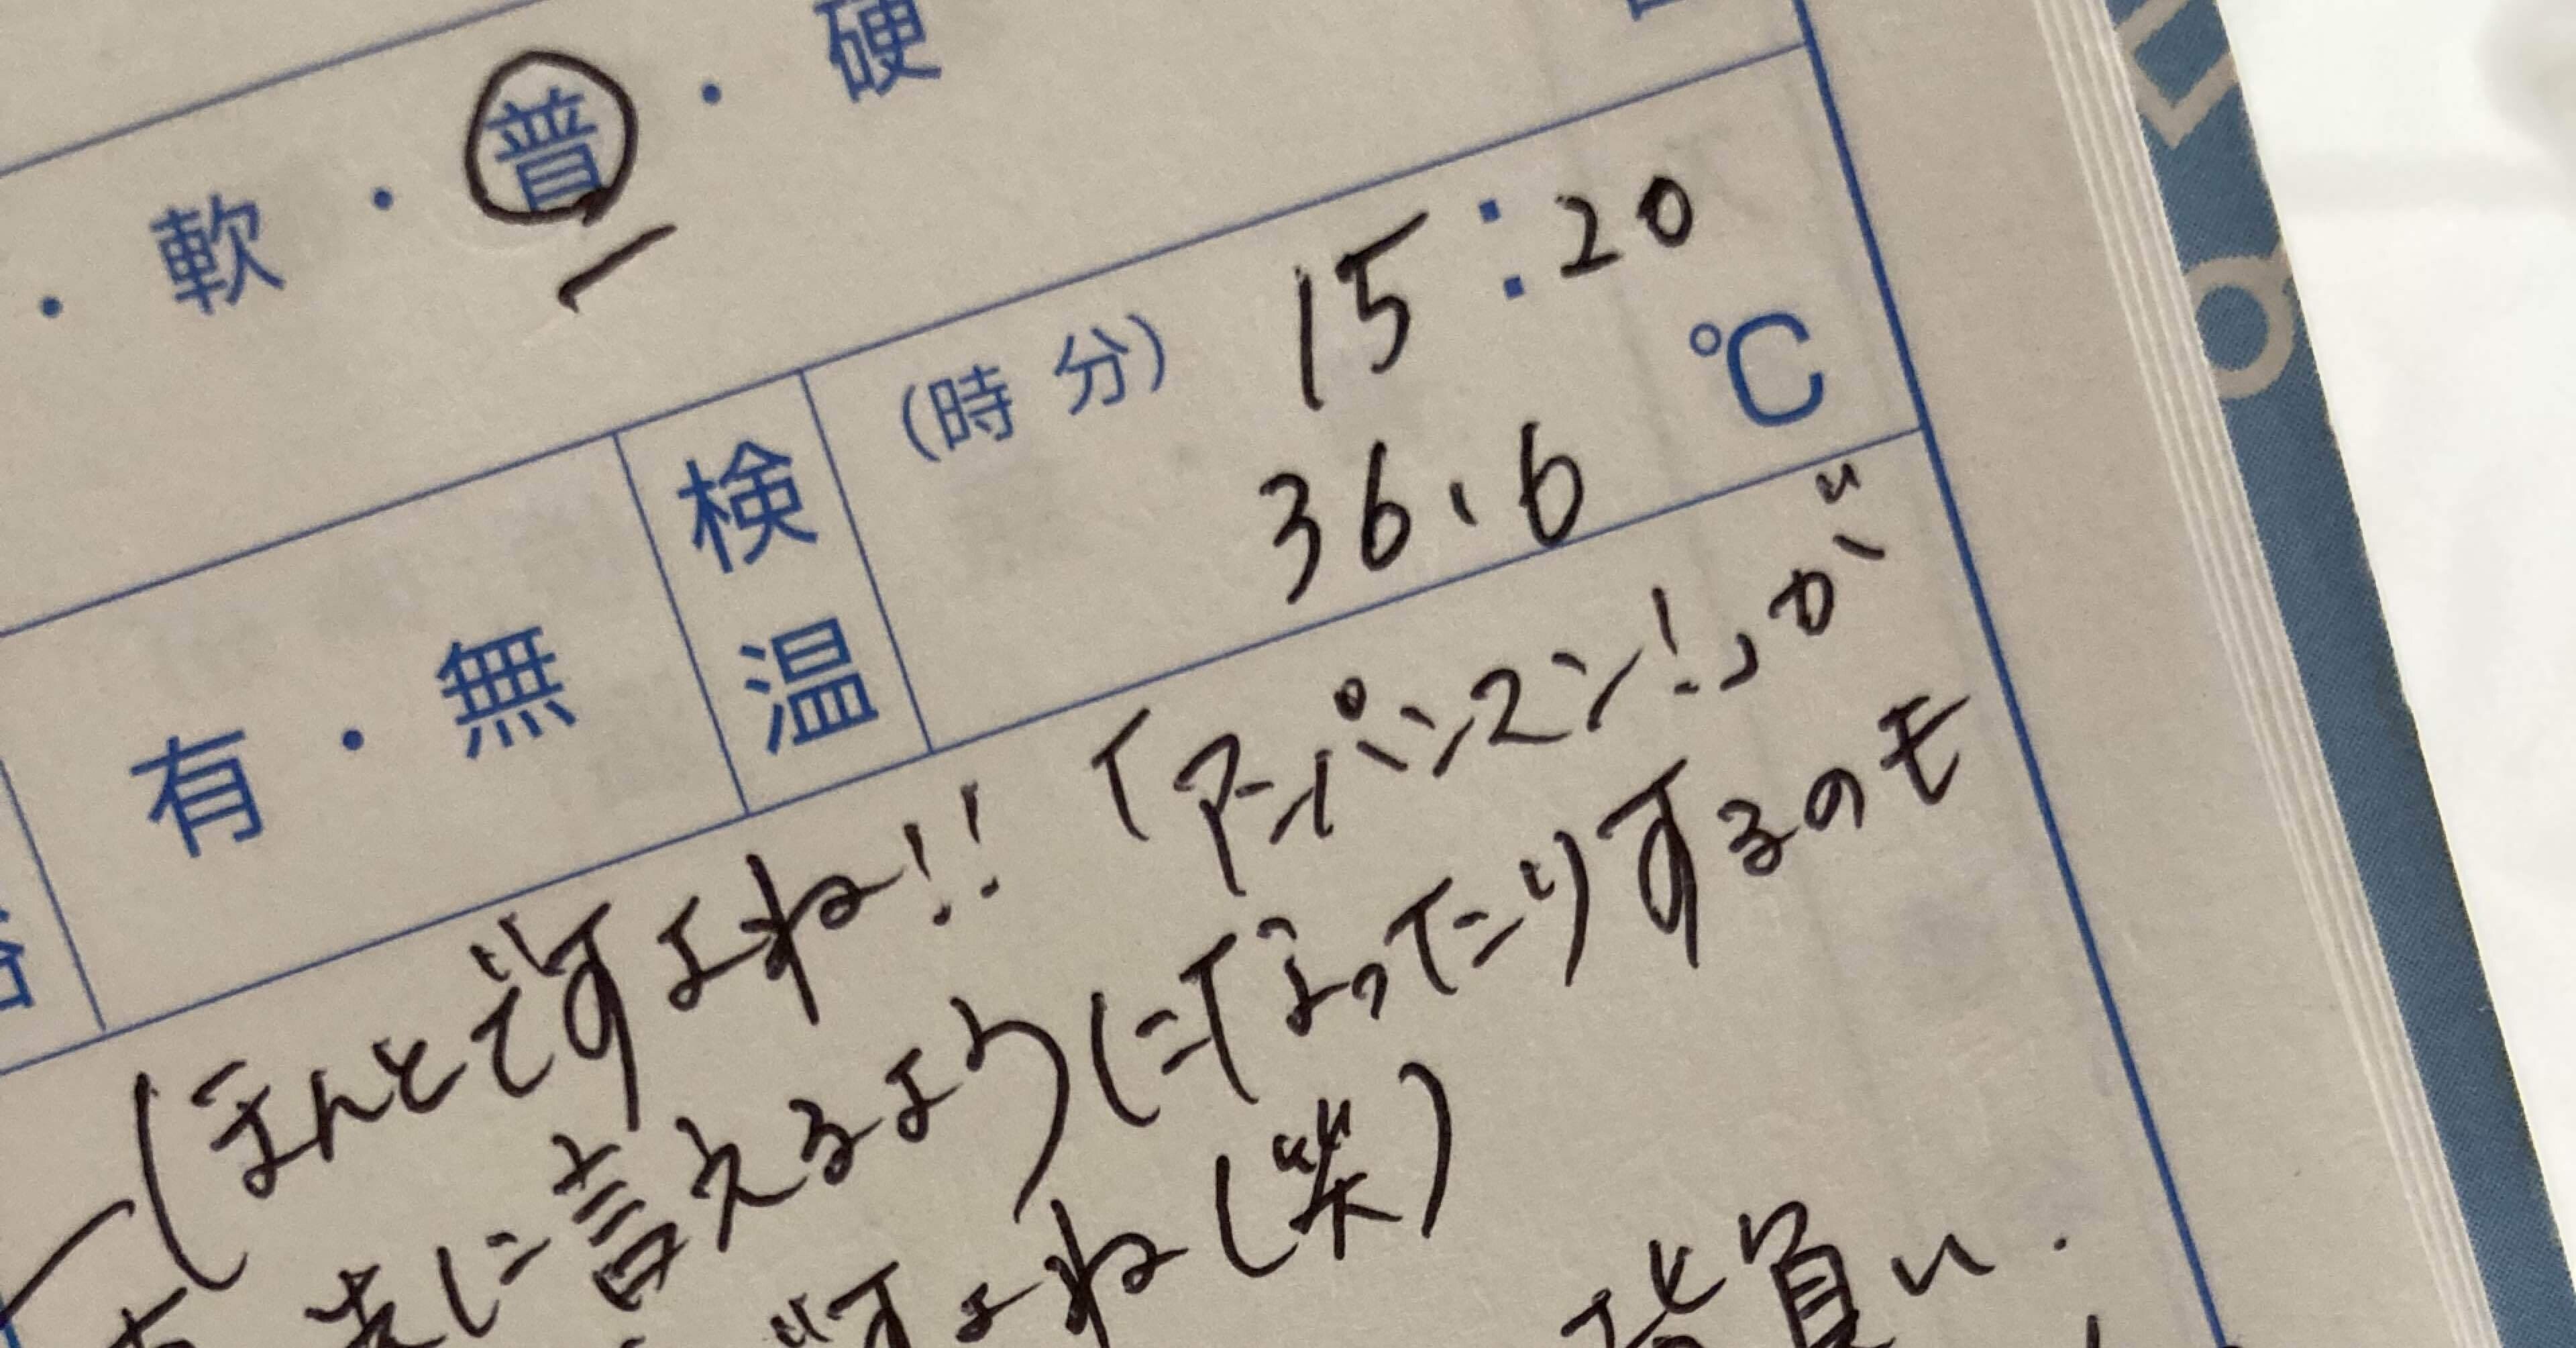 ・軟・普・硬
一
(時 分) 15:20
検温 36.6 ℃
有・無
(ほんとですよね!!「アンパンマン!」が
に言えるようになったりするのも
すよね(笑)
背負い